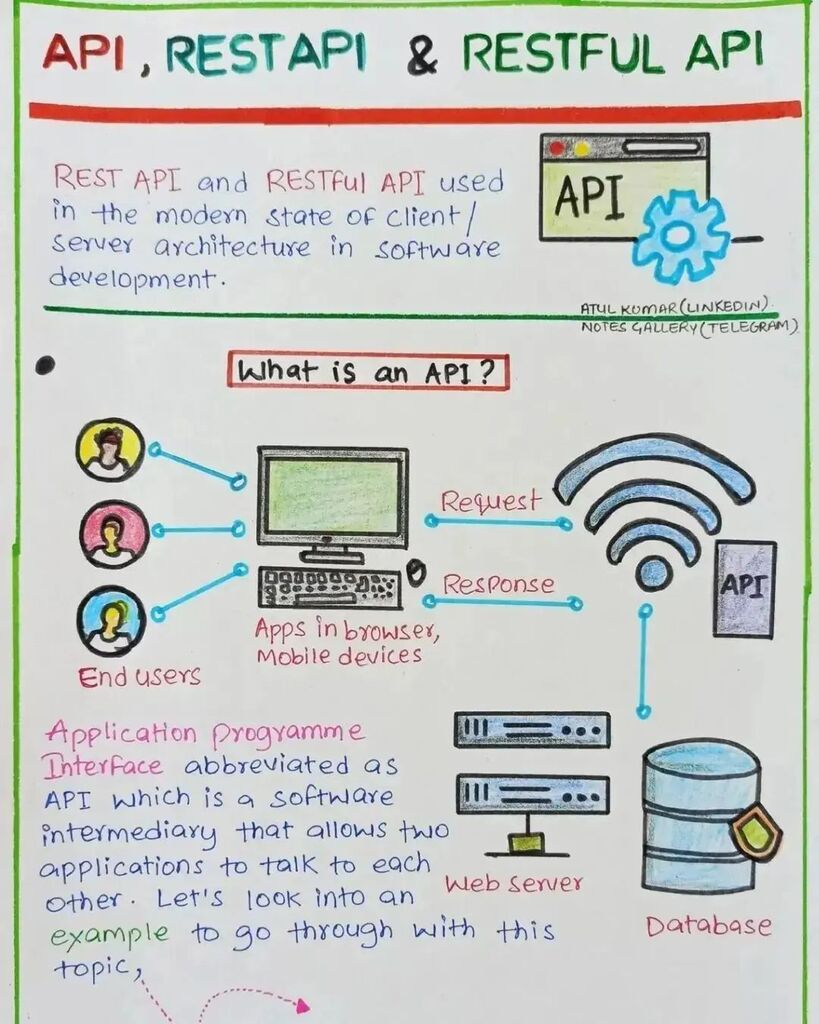 API, REST API & RESTFUL API
REST API and RESTful API used
in the modern state of client/
server architecture in software
development.
API
ATUL KUMAR (LINKEDIN).
NOTES GALLERY (TELEGRAM)
What is an API?
Request
Response
API
Apps in browser,
Mobile devices
End users
Application programme
Interface abbreviated as
API which is a software
intermediary that allows two
applications to talk to each
other. Let's look into an
example to go through with this
topic,
Web server
Database